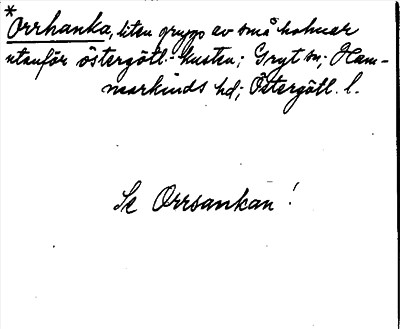 *Orrhanka, liten grupp av små holmar
utanför östergötl. kusten; Gryt sn; Ham-
markinds hd; Östergötl. l.
Se Orrsankan!